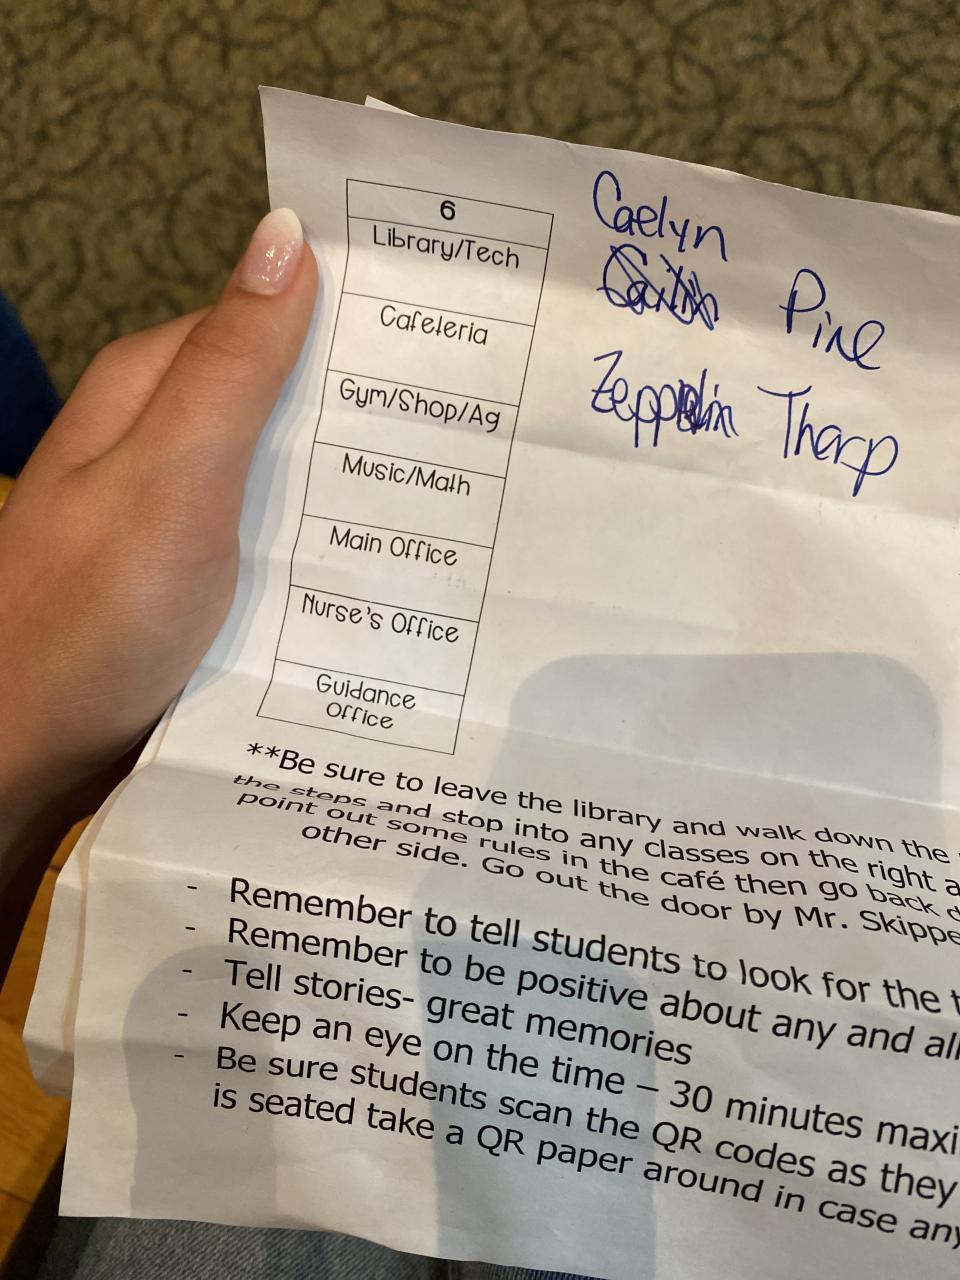 6
Library/Tech
Cafeteria
Gym/Shop/Ag
Music/Math
Main Office
Nurse's Office
Guidance
Office
Caelyn
Pine
Zeppelin Tharp
**Be sure to leave the library and walk down the
the steps and stop into any classes on the right
point out some rules in the café then go back
other side. Go out the door by Mr. Skippe
- Remember to tell students to look for the
- Remember to be positive about any and all
- Tell stories- great memories
- Keep an eye on the time – 30 minutes maxi
- Be sure students scan the QR codes as they
is seated take a QR paper around in case any